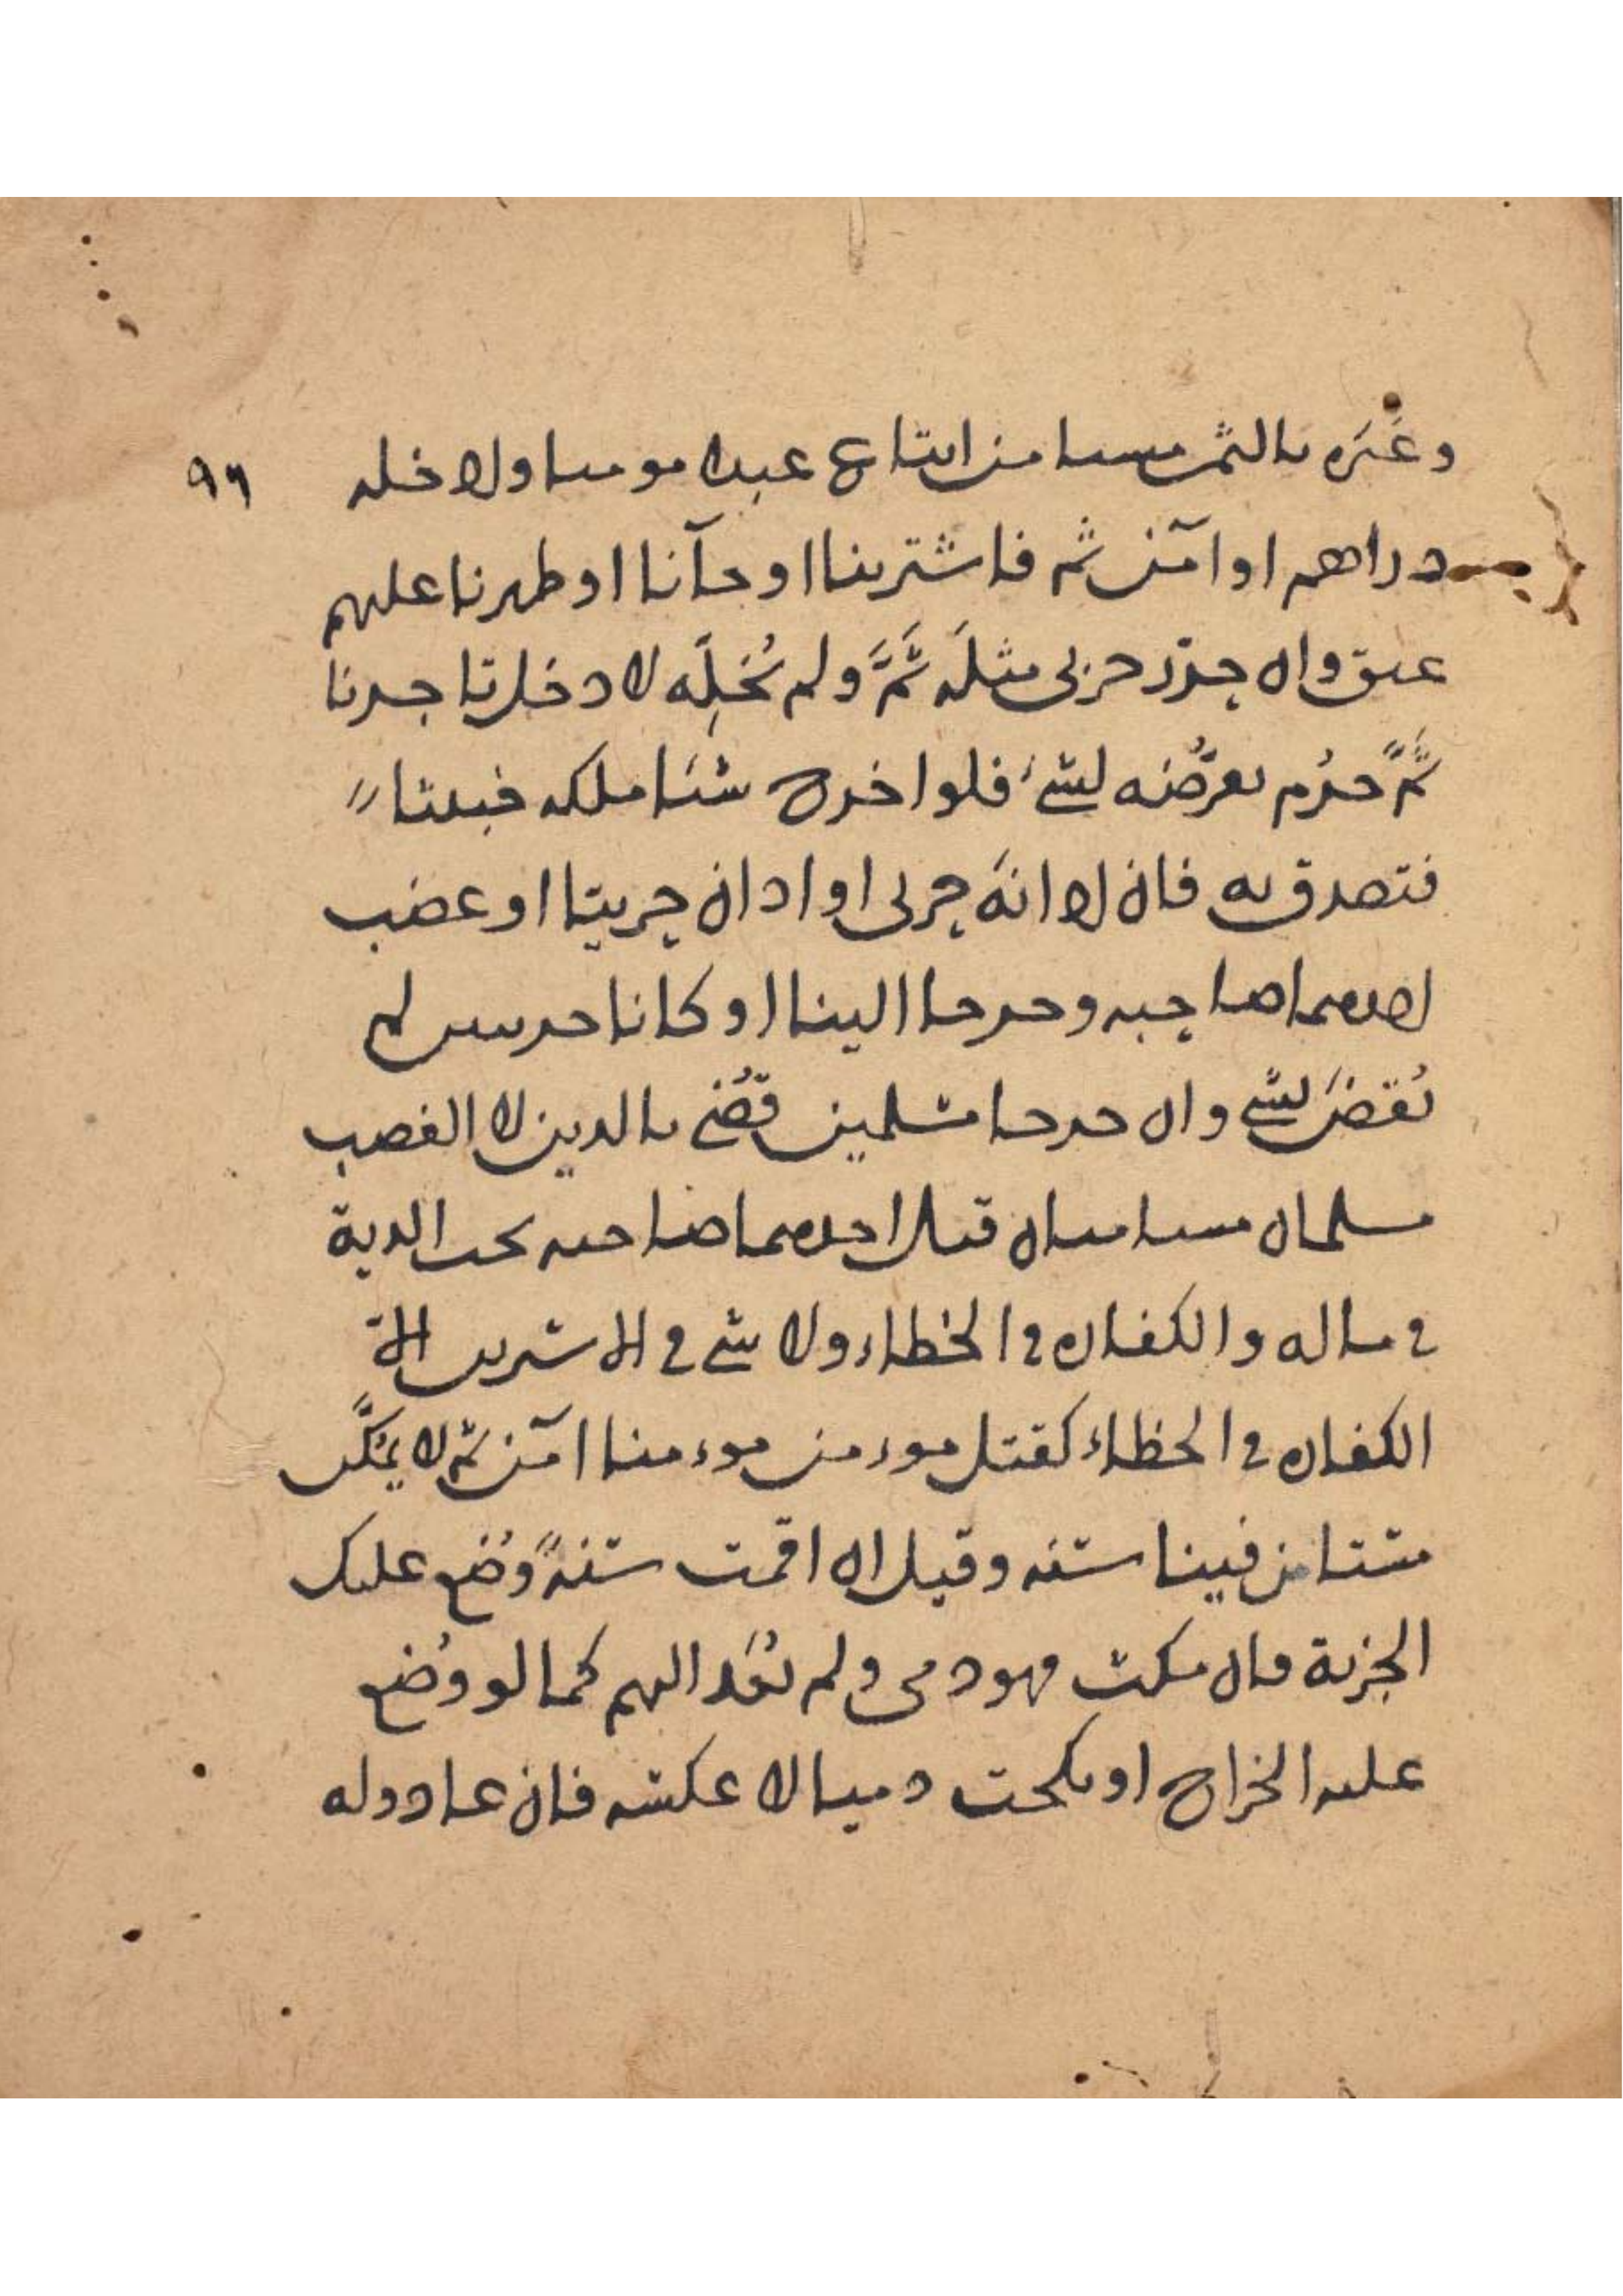 وغيره بالثمن مستامن ابتاع عبدا مومنا وادخله ٩٦
دراهم او آمن ثم فاشترينا او جآنا او ظهرنا عليهم
عتق وان
ثم حرم تعرضه لشئ فلو اخرج شئنا ملكه خبيثا
فتصدق به فان ادانه حربى او ادان حربيتا او غصب
احدهما صاحبه وخرجا الينا او كانا حربيين لم
نقض لشئ وان خرجا مسلمين قضى بالدين لا الغصب
مسلمان مستامنان قتل احدهما صاحبه تجب الدية
فى ماله والكفاره فى الخطاء ولا شئ فى الاسيرين الا
الكفاره فى الخطاء كقتل موءمن موءمنا امن ثم لا يمكن
مستامن فينا سنه وقيل ان اقمت سنة وضع عليك
الجزية فان مكث فهو ذمى ولم يعد اليهم كما لو وضع
عليه الخراج او نكحت ذميا لا عكسه فان عاد وله